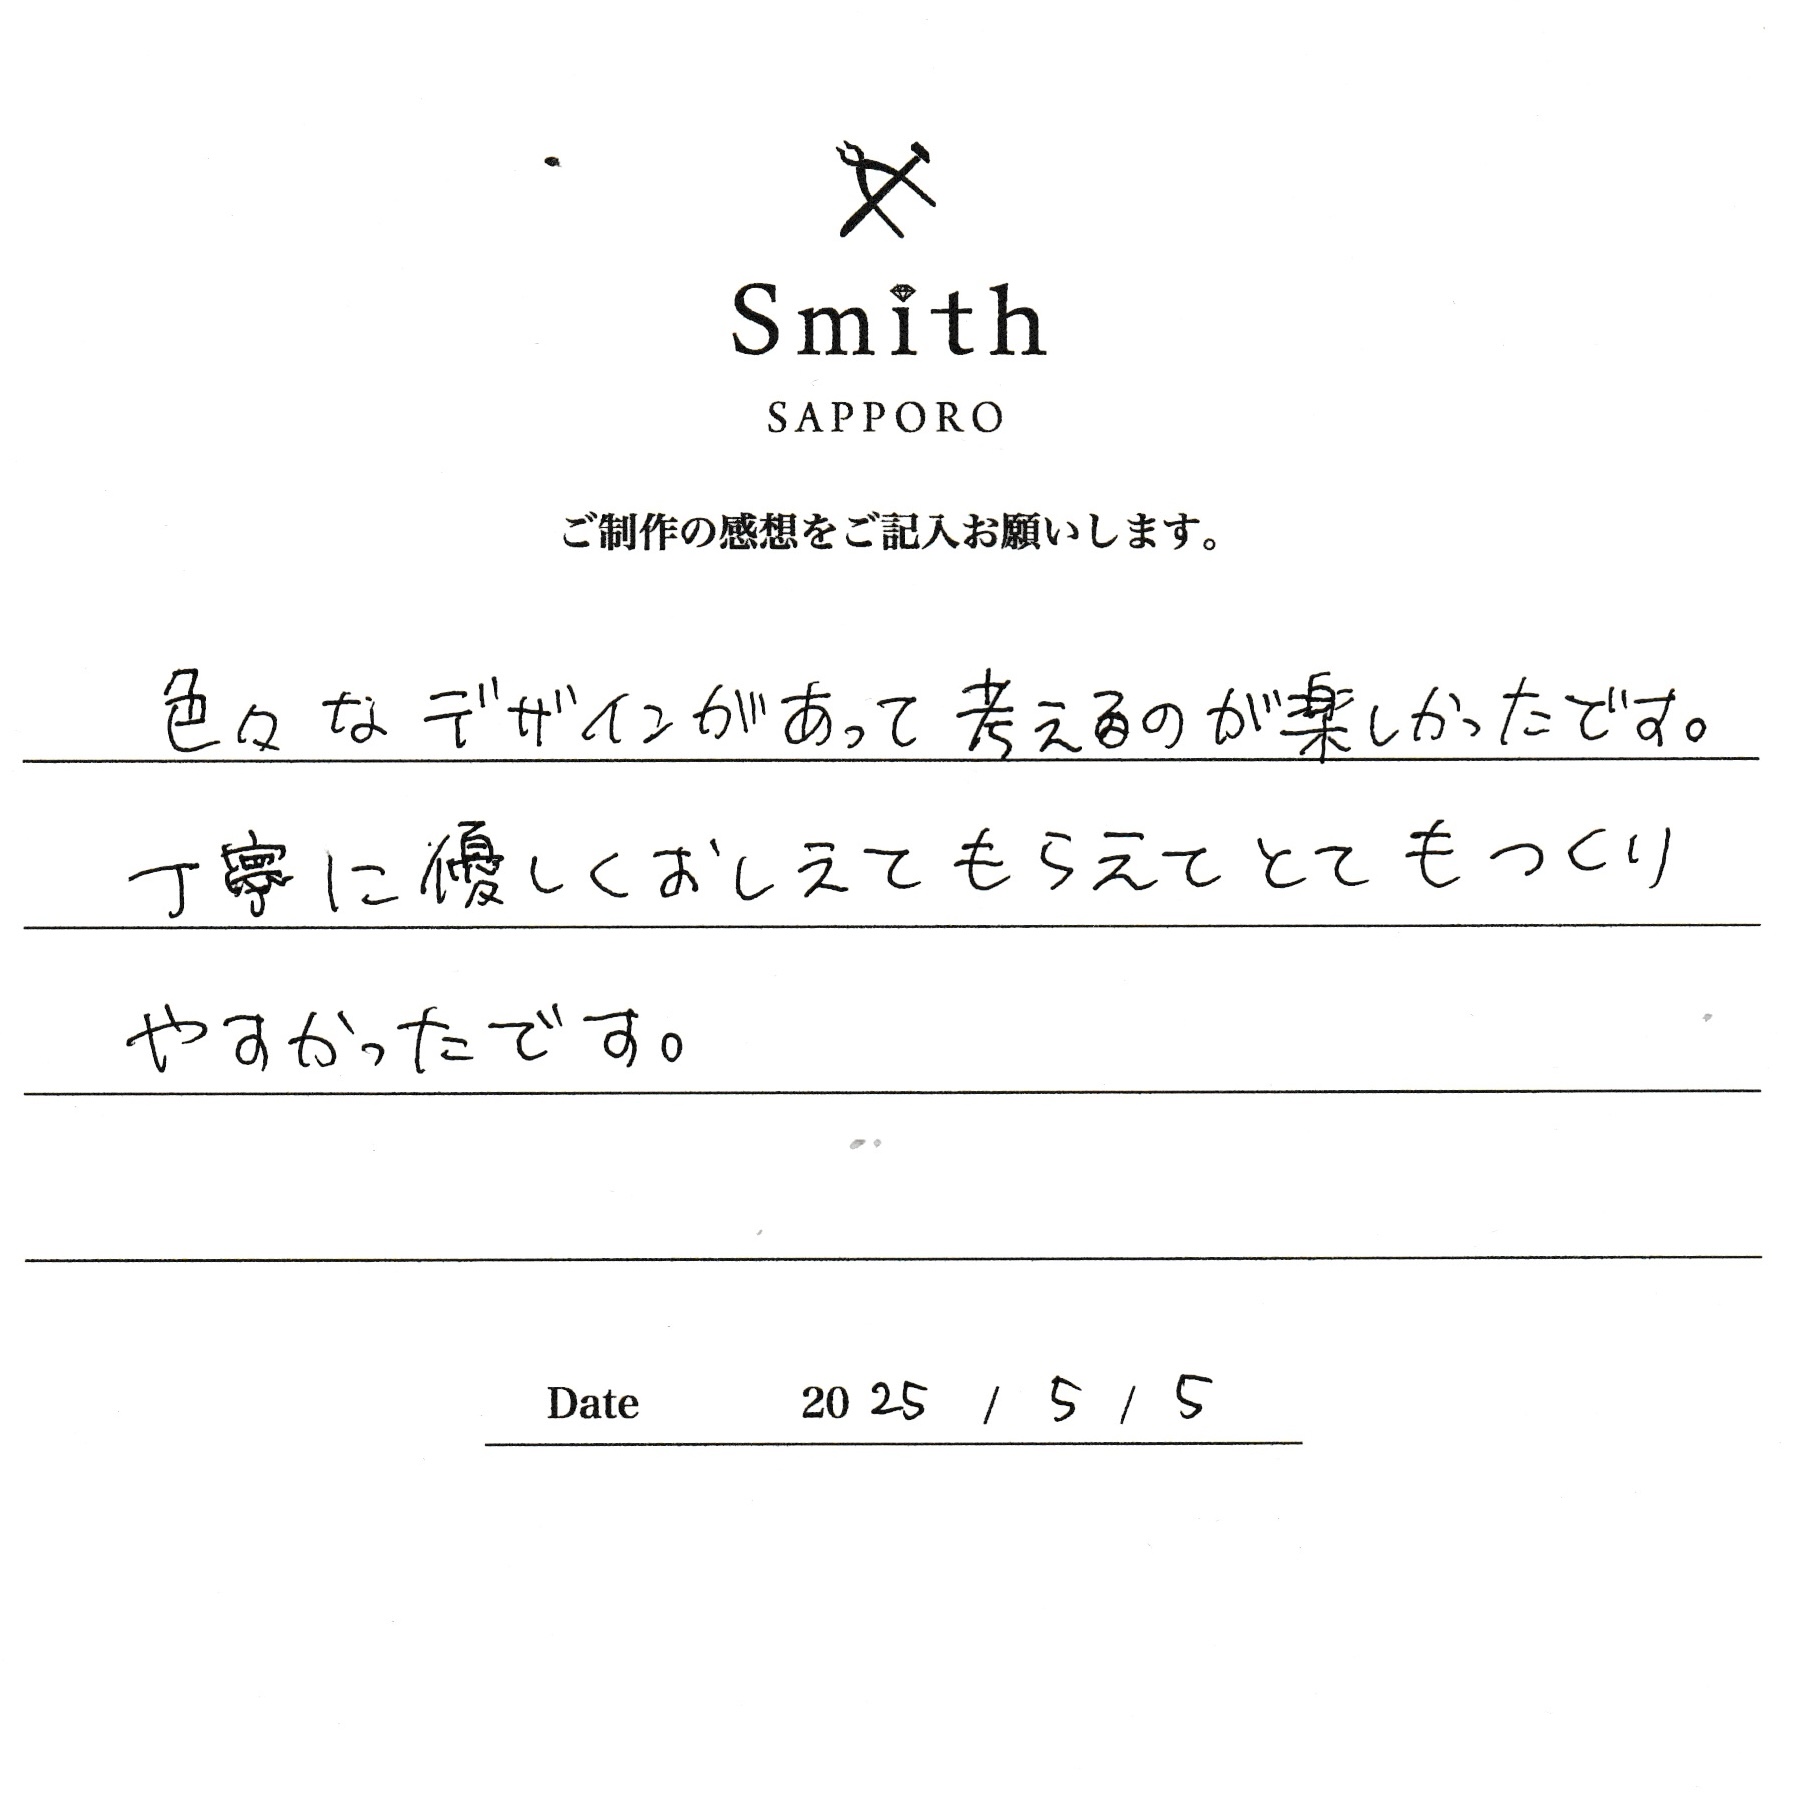 Smith
SAPPORO
ご制作の感想をご記入お願いします。
色々なデザインがあって考えるのが楽しかったです。
丁寧に優しくおしえてもらえてとてもつくり
やすかったです。
Date 2025 / 5 / 5